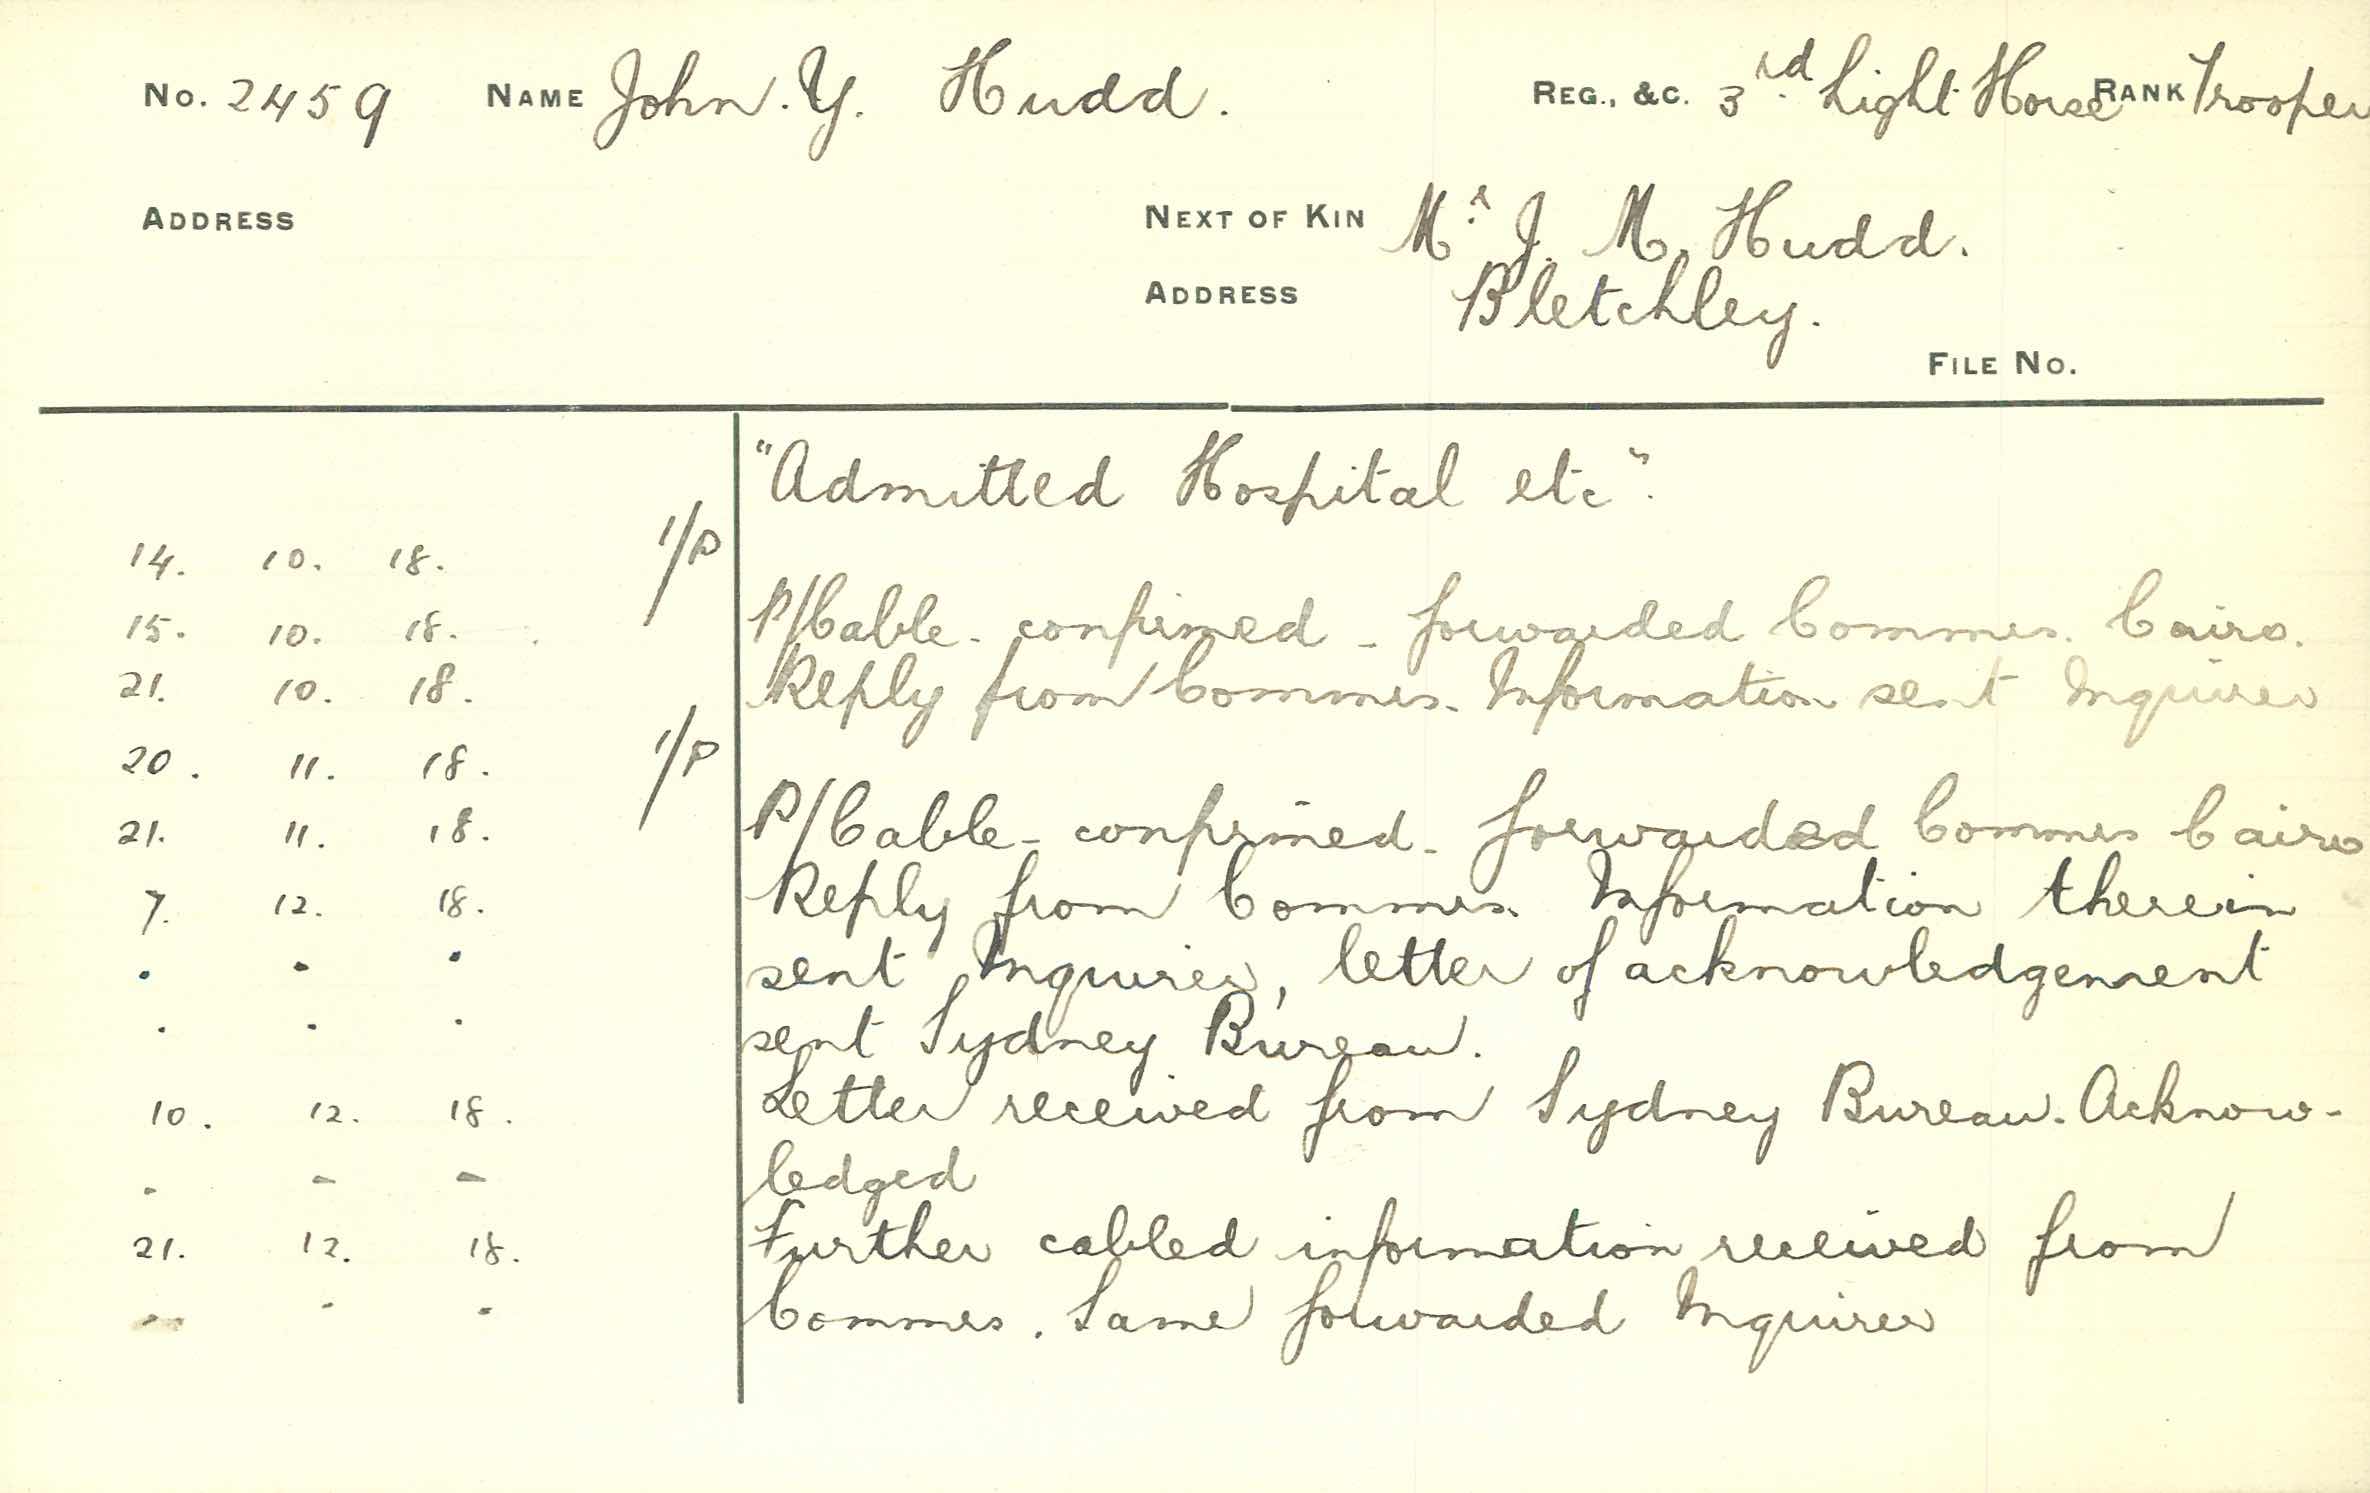 No. 2459 NAME John. Y. Hudd. REG., &C. 3rd. Light Horse RANK Trooper
ADDRESS NEXT OF KIN Mr J. M. Hudd.
ADDRESS Bletchley.
FILE No.
"Admitted Hospital etc".
14. 10. 18. 1/P
15. 10. 18. P/Cable - confirmed - forwarded Commis. Cairo.
21. 10. 18. Reply from Commis. Information sent Inquirer
20. 11. 18. 1/P
21. 11. 18. P/Cable - confirmed - forwarded Commis Cairo
7. 12. 18. Reply from Commis. Information therein
" " " sent Inquirer, letter of acknowledgement
" " " sent Sydney Bureau.
10. 12. 18. Letter received from Sydney Bureau. Acknow-
" " " ledged
21. 12. 18. Further cabled information received from
" " " Commis. Same forwarded Inquirer